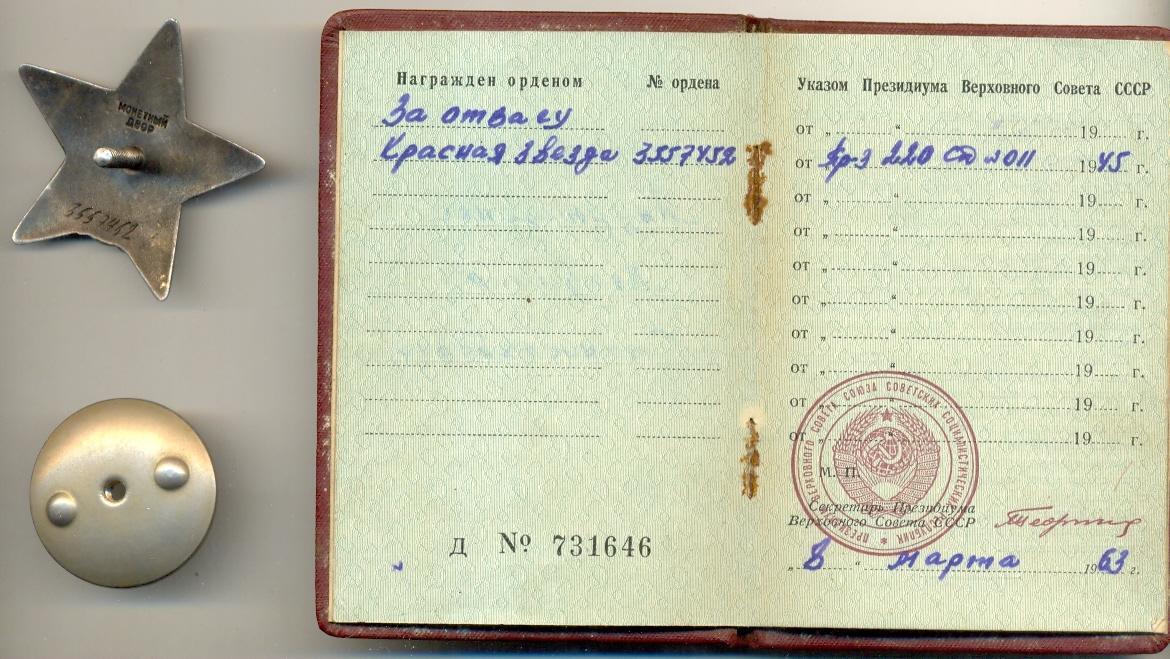 МОНЕТНЫЙ
ДВОР
3557452
Награжден орденом № ордена
За отвагу
Красная Звезда 3557452
Д № 731646
Указом Президиума Верховного Совета СССР
от „ “ 19 г.
от Пр-з 220 сд 1945 г.
от „ “ 19 г.
от „ “ 19 г.
от „ “ 19 г.
от „ “ 19 г.
от „ “ 19 г.
от „ “ 19 г.
от „ “ 19 г.
от „ “ 19 г.
ПРЕЗИДИУМ ВЕРХОВНОГО СОВЕТА СОЮЗА СОВЕТСКИХ СОЦИАЛИСТИЧЕСКИХ РЕСПУБЛИК
М. П.
Секретарь Президиума
Верховного Совета СССР
„8“ марта 1963 г.